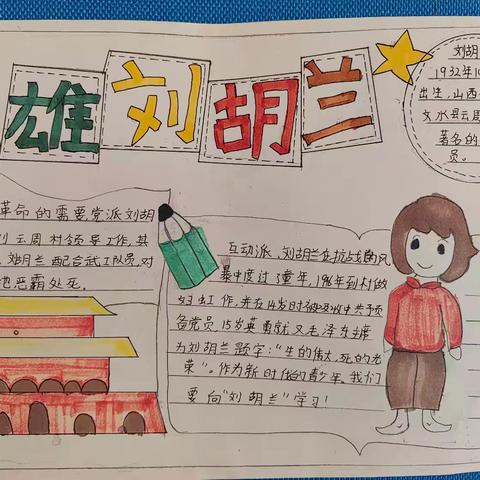 雄刘胡兰
刘胡
1932年10
出生,山西
文水县云周
著名的
员。
革命的需要,党派刘胡
云周村领导工作,其
刘胡兰配合武工队员,对
恶霸处死。
互动派,刘胡兰在抗战的风
暴中度过了童年,1946年到村做
妇女工作,并在14岁时被吸收中共预
备党员,15岁英勇就义毛泽东主席
为刘胡兰题字:“生的伟大,死的光
荣”。作为新时代的青少年,我们
要向“刘胡兰”学习!